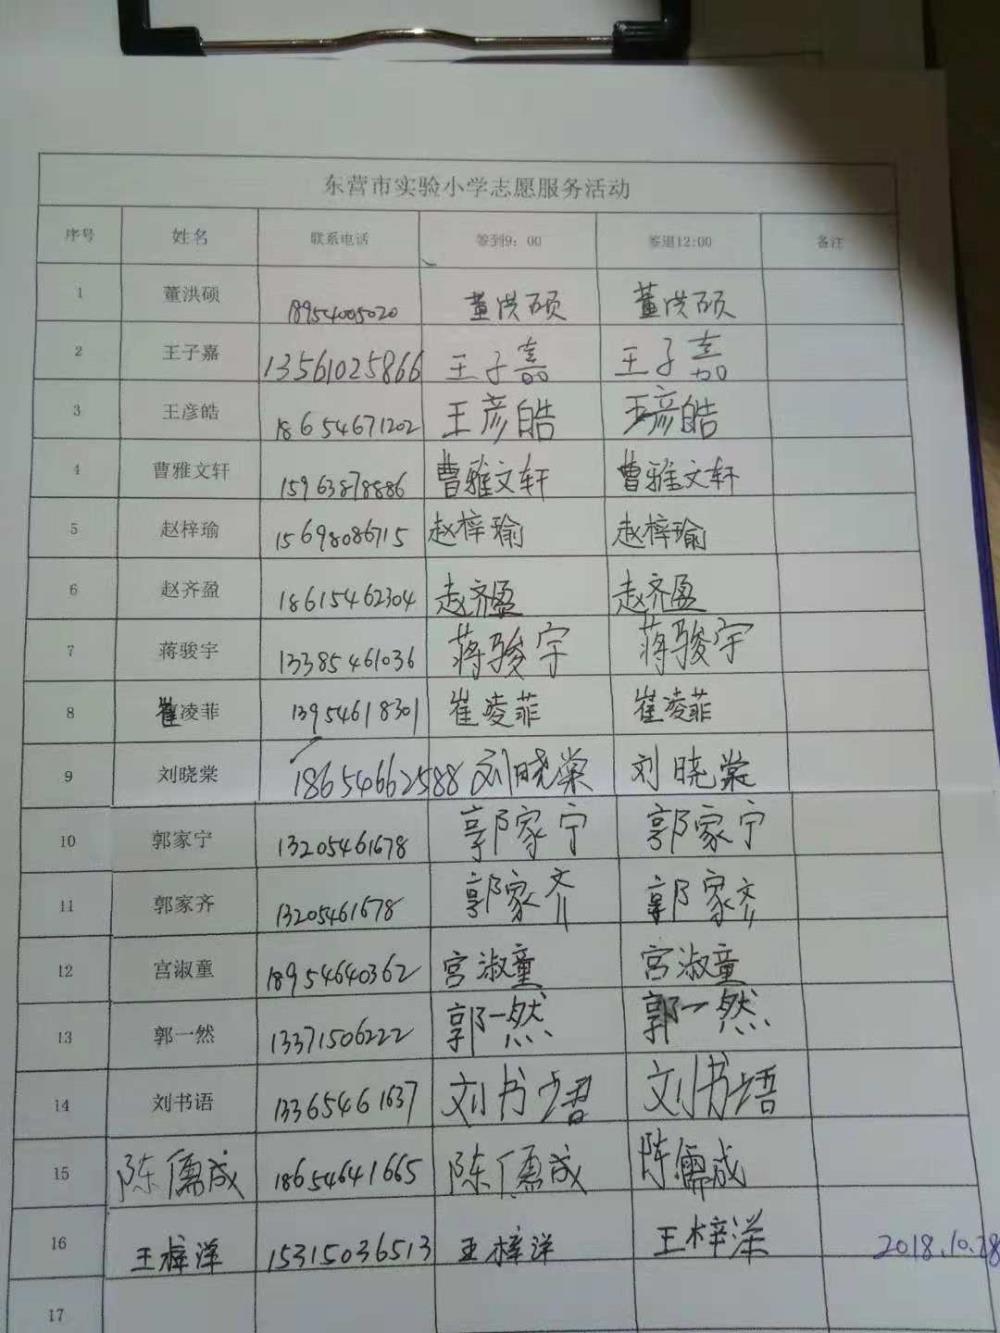 东营市实验小学志愿服务活动
序号 姓名 联系电话 签到9：00 签退12:00 备注
1 董洪硕 18954005020 董洪硕 董洪硕
2 王子嘉 13561025866 王子嘉 王子嘉
3 王彦皓 18654671202 王彦皓 王彦皓
4 曹雅文轩 15963878886 曹雅文轩 曹雅文轩
5 赵梓瑜 15698086715 赵梓瑜 赵梓瑜
6 赵齐盈 18615462304 赵齐盈 赵齐盈
7 蒋骏宇 13385461036 蒋骏宇 蒋骏宇
8 崔凌菲 13954618301 崔凌菲 崔凌菲
9 刘晓棠 18654662588 刘晓棠 刘晓棠
10 郭家宁 13205461678 郭家宁 郭家宁
11 郭家齐 13205461678 郭家齐 郭家齐
12 宫淑童 18954640362 宫淑童 宫淑童
13 郭一然 13371506222 郭一然 郭一然
14 刘书语 13365461637 刘书语 刘书语
15 陈儒成 18654641665 陈儒成 陈儒成
16 王梓洋 15315036513 王梓洋 王梓洋 2018.10.28
17